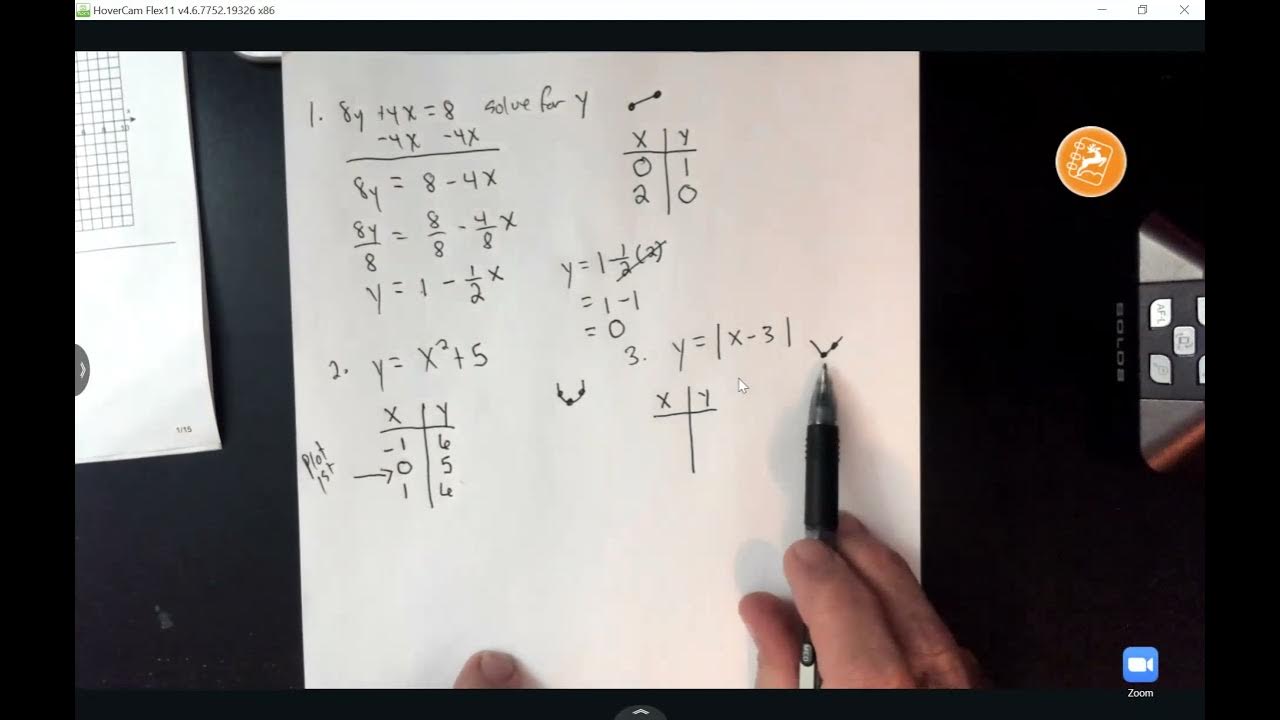 HoverCam Flex11 v4.6.7752.19326 x86
1. 8y + 4x = 8 solve for y
-4x -4x
8y = 8 - 4x
8y/8 = 8/8 - 4/8 x
y = 1 - 1/2 x
x y
0 1
2 0
y = 1 - 1/2 (2)
= 1 - 1
= 0
2. y = x² + 5
x y
-1 6
0 5
1 6
Plot
1st
3. y = |x - 3|
x y
1/15
x
10
AF-L
SOLDE
Zoom